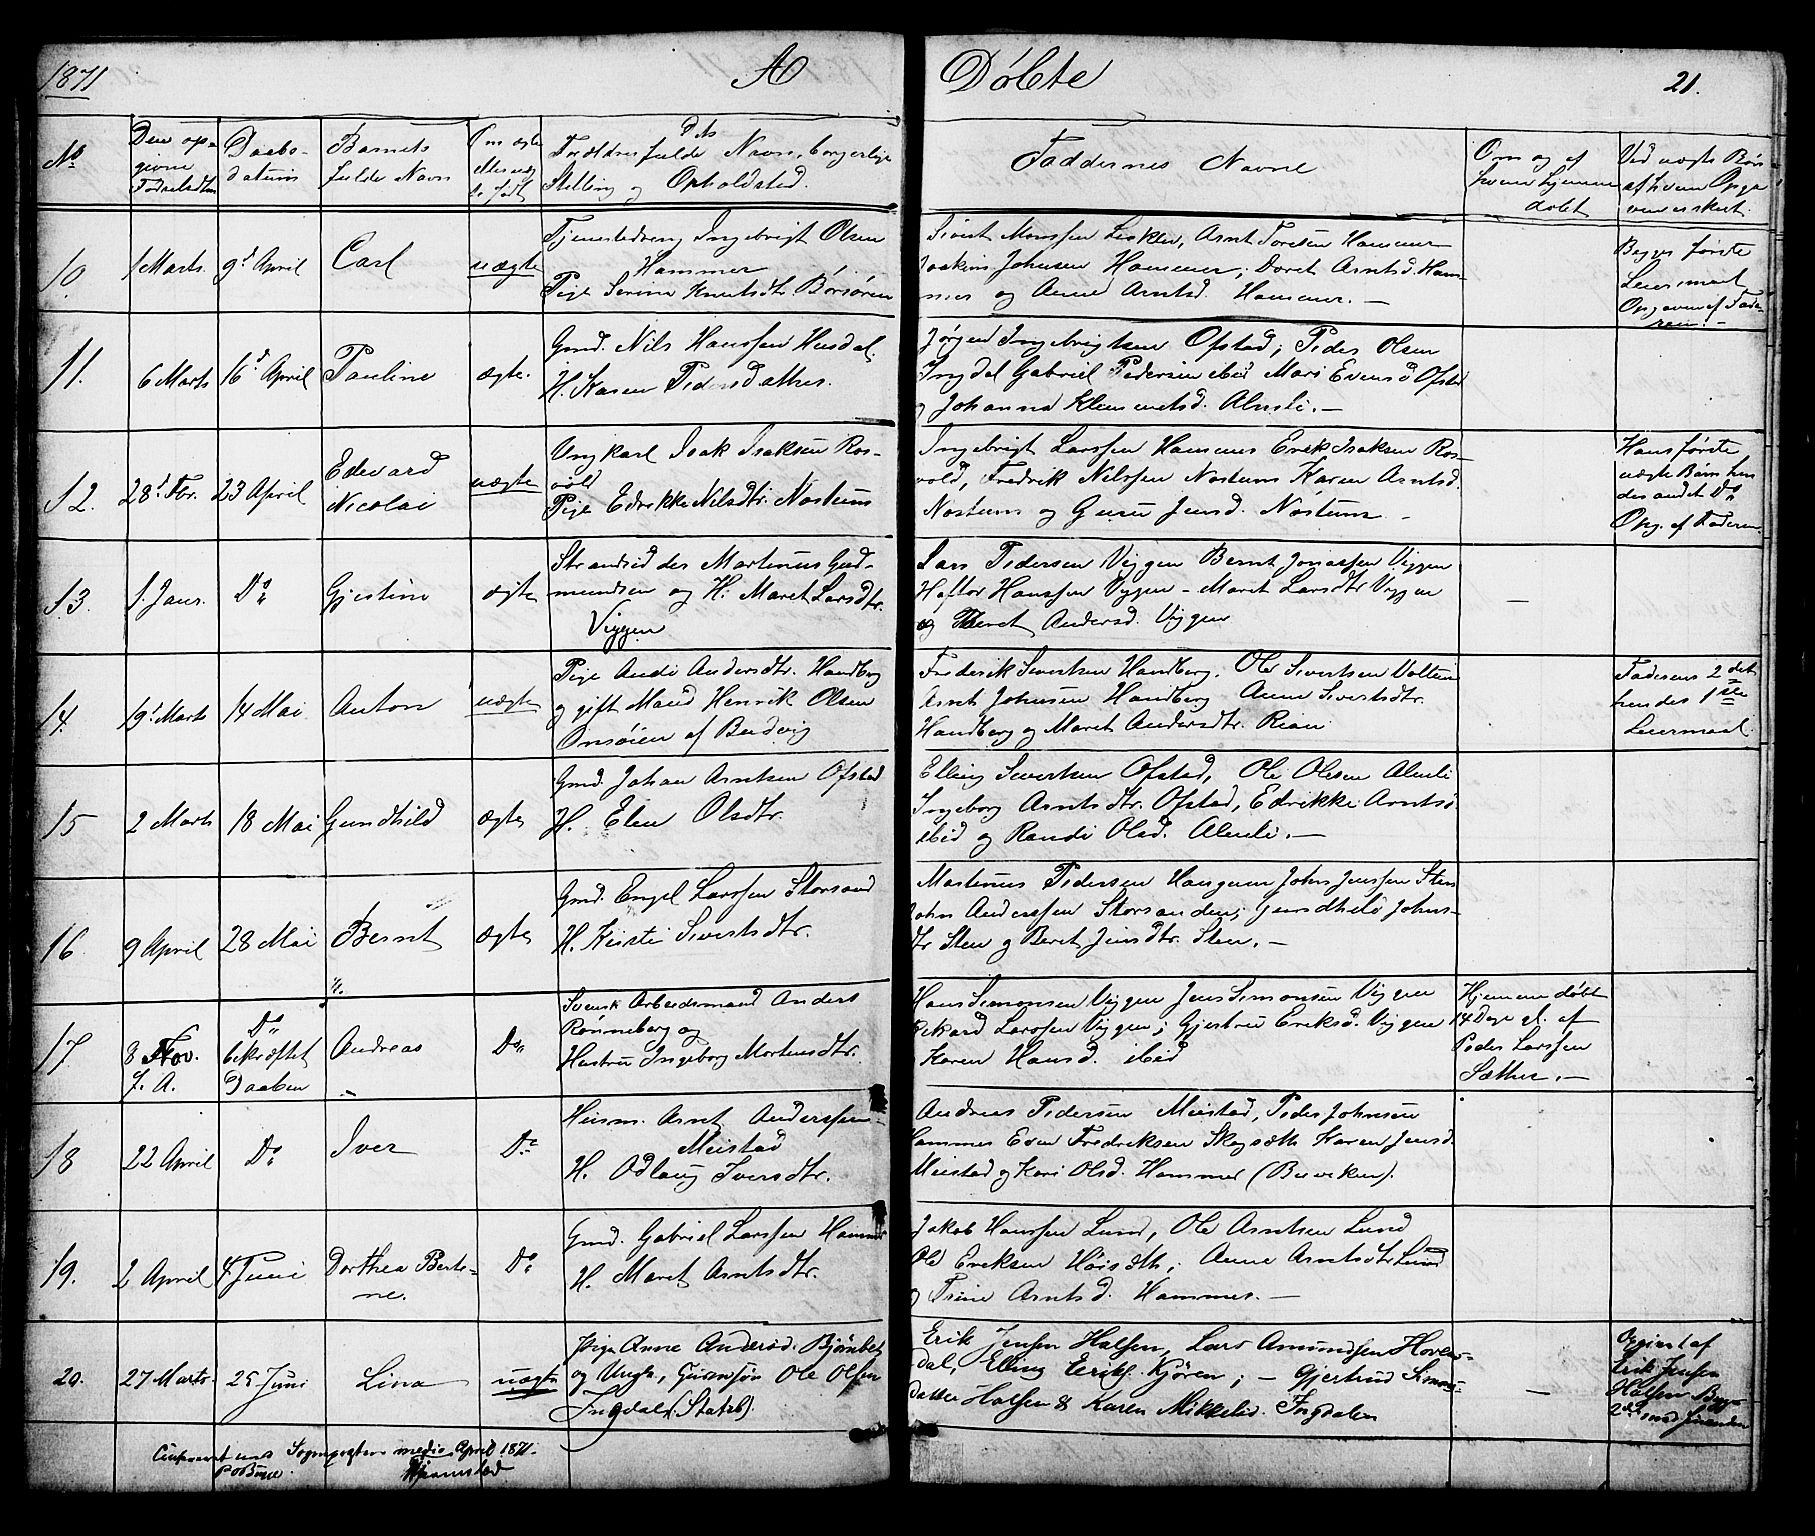 1871 A Døbte 21.
No Den opgivne Fødselsdatum Daabsdatum Barnets fulde Navn Om ægte eller uægte født Forældres fulde Navn, borgerlige Stilling og Opholdsted. Faddernes Navne Om og af hvem hjemmedøbt Ved uægte Børn af hvem Opgaven er skeet.
10 1 Marts 9d April Carl uægte
Tjenestedreng Ingebrigt Olsen
Hammer
Pige Serine Knutsdtr. Børsøren
Sivert Monssen Lerkleu, Arnt Toresen Hammer
Joakim Johnsen Hammer; Doret Arntsd. Ham-
mer og Anne Arntsd. Hammer. —
Begges første
Leiermaal
Opgaven af Fade-
ren. —
11. 6 Marts 16d April Pauline ægte.
Gmd. Nils Hanssen Husdal
H. Karen Pedersdatter.
Jørgen Ingebrigtsen Ofstad; Peder Olsen
Ingdal Gabriel Pedersen ibid Mari Evensd Ofstad
og Johanna Klemmetsd. Almli. —
12. 28d Fbr. 23 April Edevard Nicolai uægte
Ungkarl Isak Isaksen Ros-
vold
Pige Edrikke Nilsdtr. Nostum
Ingebrigt Larssen Hammer Erik Isaksen Ros-
vold, Fredrik Nilssen Nostum Karen Arntsd.
Nostum og Guru Jensd. Nostum —
Hans første
uægte Barn hen
des andet Do
Opg. af Faderen
13. 1. Janr. Do Gjestine ægte
Strandsidder Martinus Gud-
mundsen og H. Maret Larsdtr.
Viggen
Lars Pedersen Viggen Bernt Jonassen Viggen
Haftor Hanssen Viggen - Maret Larsdtr Viggen
og Beret Andersd. Viggen
—
14. 19d Marts 14 Mai Anton uægte
Pige Andi Andersdtr. Handberg
og gift Mand Henrik Olsen
Onsøien af Budvig
Frederik Sivertsen Handberg. Ole Sivertsen Volten
Arnt Johnsen Handberg Anne Sivertsdtr.
Handberg og Maret Andersdtr. Rian
Faderens 2det
hendes 1ste
Leiermaal.
15 2 Marts 18 Mai Gundhild ægte
Gmd. Johan Arntsen Ofstad
H. Elen Olsdtr.
Elling Sivertsen Ofstad, Ole Olssen Almli
Ingeborg Arntsdtr. Ofstad, Edrikke Arntsd
ibid og Randi Olsd. Almli. —
16. 9 April 28 Mai Bernt ægte
Gmd. Engel Larssen Storsand
H. Kirsti Sivertsdtr.
Martinus Pedersen Haugum John Jenssen Sten
John Anderssen Storsanden; Gundhild Johns-
dtr Sten og Beret Jensdtr. Sten. —
17 8 Nov. f. A. Do bekræftet Daaben Andreas Do
Svensk Arbeidsmand Anders
Rønneberg og
Hustru Ingeborg Mortensdtr.
Hans Simonsen Viggen Jens Simonsen Viggen
Rikard Larssen Viggen; Gjertru Eriksd. Viggen
Karen Hansd. ibid
Hjemmedøbt
14 Dage gl. af
Peder Larssen
Sæther. —
18 22 April Do Iver Do
Husm. Arnt Anderssen
Meistad
H. Odlaug Iversdtr.
Andreas Pedersen Meistad, Peder Johnsen
Hammer Even Fredriksen Skogsæth Karen Jensd.
Meistad og Kari Olsd. Hammer (Buviken).
19. 2 April 4 Juni Dorthea Bert-
ne. Do
Gmd. Gabriel Larssen Hammer
H. Maret Arntsdtr.
Jakob Hanssen Lund, Ole Arntsen Lund
Ole Eriksen Høisæth; Anne Arntsdtr Lund
og Trine Arntsd. Hammer. —
20. 27 Marts 25 Juni Lina uægte
Pige Anne Andersd. Bjørnbet
og Ungk. Ole Olsen
Ingdal (Statsb).
Erik Jensen Halsen, Lars Amundsen Hoven-
dal, Elling Eriks. Kjøren; — Gjertrud Simons-
datter Halsen & Karen Mikkelsd. Ingdalen
—
Opgivet af
Erik Jensen
Halsen Begges
2det
Conferert med Sogneprestens medio April 1871.